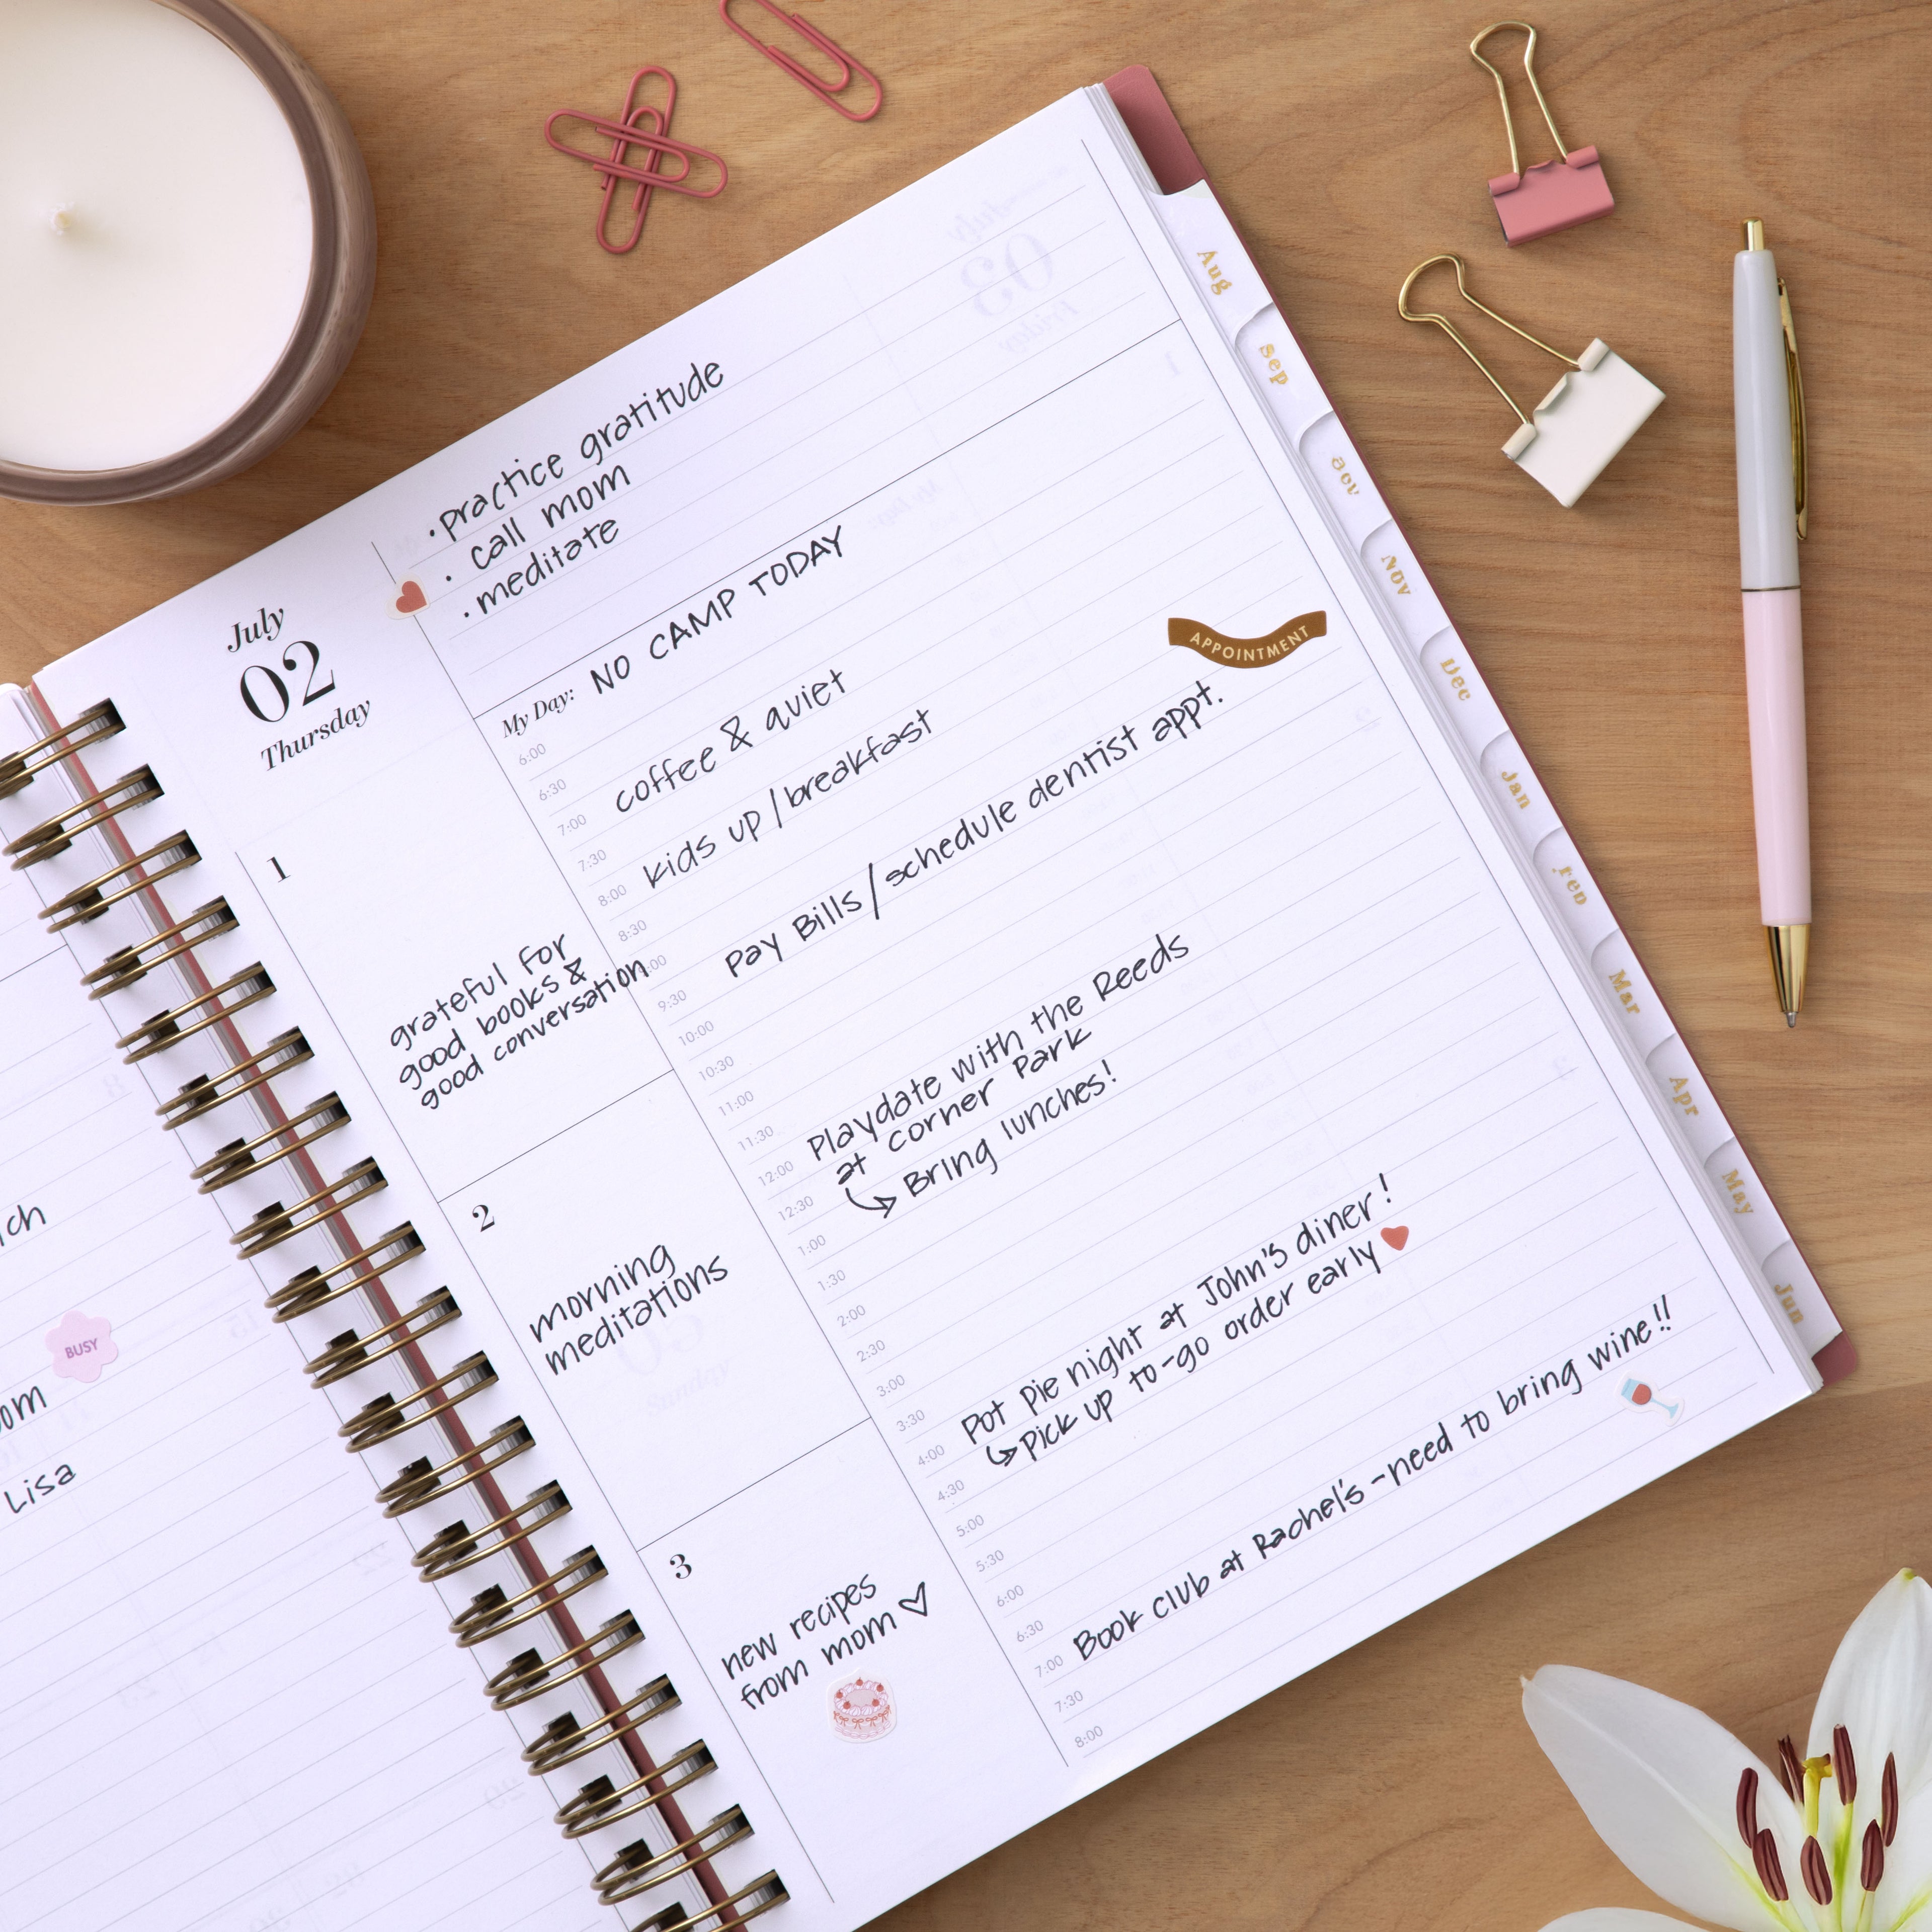 BUSY
Lisa
July
02
Thursday
• practice gratitude
• call mom
• meditate
My Day: NO CAMP TODAY
6:00
6:30
7:00 coffee & quiet
7:30
8:00 kids up / breakfast
8:30
9:30 Pay Bills / schedule dentist appt.
APPOINTMENT
10:00
10:30
11:00
11:30
12:00 Playdate with the Reeds
12:30 at corner Park
↳ Bring lunches!
1:00
1:30
2:00
2:30
3:00
3:30
4:00 Pot Pie night at John's diner!
4:30 ↳ Pick up to-go order early
5:00
5:30
6:00
6:30
7:00 Book club at Rachel's - need to bring wine!!
7:30
8:00
1
grateful for
good books &
good conversation
2
morning
meditations
3
new recipes
from mom ♡
Aug
Sep
Nov
Dec
Jan
Feb
Mar
Apr
May
Jun